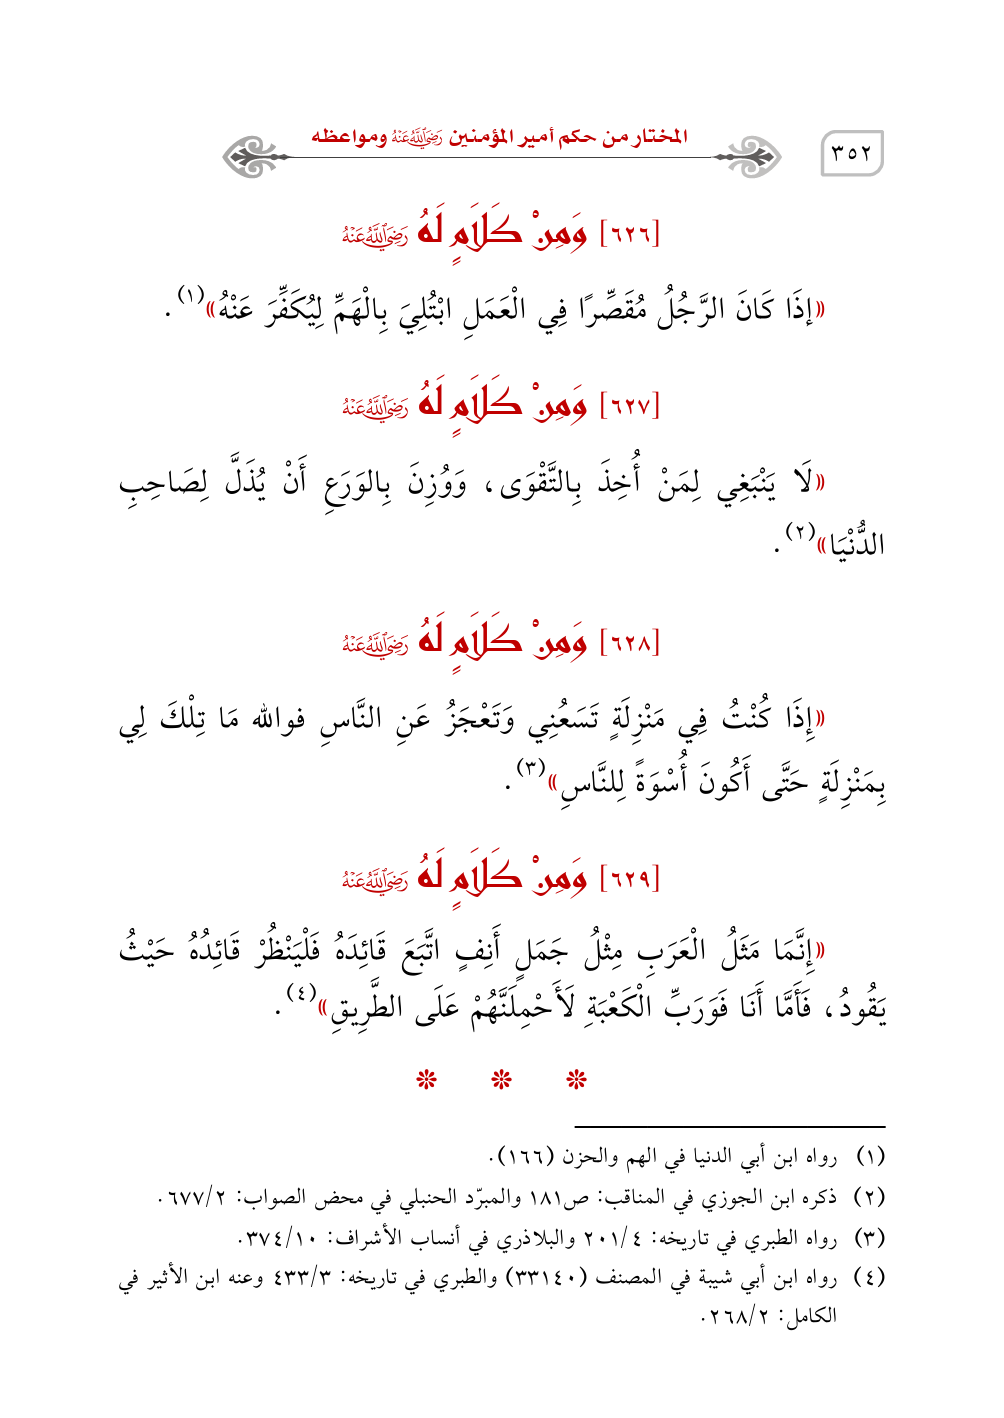 ٣٥٢
المختار من حكم أمير المؤمنين رَضِيَ اللَّهُ عَنْهُ ومواعظه
[٦٢٦] وَمِنْ كَلَامٍ لَهُ رَضِيَ اللَّهُ عَنْهُ
«إذَا كَانَ الرَّجُلُ مُقَصِّرًا فِي الْعَمَلِ ابْتُلِيَ بِالْهَمِّ لِيُكَفِّرَ عَنْهُ»(١).
[٦٢٧] وَمِنْ كَلَامٍ لَهُ رَضِيَ اللَّهُ عَنْهُ
«لَا يَنْبَغِي لِمَنْ أُخِذَ بِالتَّقْوَى، وَوُزِنَ بِالوَرَعِ أَنْ يُذَلَّ لِصَاحِبِ
الدُّنْيَا»(٢).
[٦٢٨] وَمِنْ كَلَامٍ لَهُ رَضِيَ اللَّهُ عَنْهُ
«إِذَا كُنْتُ فِي مَنْزِلَةٍ تَسَعُنِي وَتَعْجَزُ عَنِ النَّاسِ فوالله مَا تِلْكَ لِي
بِمَنْزِلَةٍ حَتَّى أَكُونَ أُسْوَةً لِلنَّاسِ»(٣).
[٦٢٩] وَمِنْ كَلَامٍ لَهُ رَضِيَ اللَّهُ عَنْهُ
«إِنَّمَا مَثَلُ الْعَرَبِ مِثْلُ جَمَلٍ أَنِفٍ اتَّبَعَ قَائِدَهُ فَلْيَنْظُرْ قَائِدُهُ حَيْثُ
يَقُودُ، فَأَمَّا أَنَا فَوَرَبِّ الْكَعْبَةِ لَأَحْمِلَنَّهُمْ عَلَى الطَّرِيقِ»(٤).
(١) رواه ابن أبي الدنيا في الهم والحزن (١٦٦).
(٢) ذكره ابن الجوزي في المناقب: ص١٨١ والمبرّد الحنبلي في محض الصواب: ٦٧٧/٢.
(٣) رواه الطبري في تاريخه: ٢٠١/٤ والبلاذري في أنساب الأشراف: ٣٧٤/١٠.
(٤) رواه ابن أبي شيبة في المصنف (٣٣١٤٠) والطبري في تاريخه: ٤٣٣/٣ وعنه ابن الأثير في
الكامل: ٢٦٨/٢.